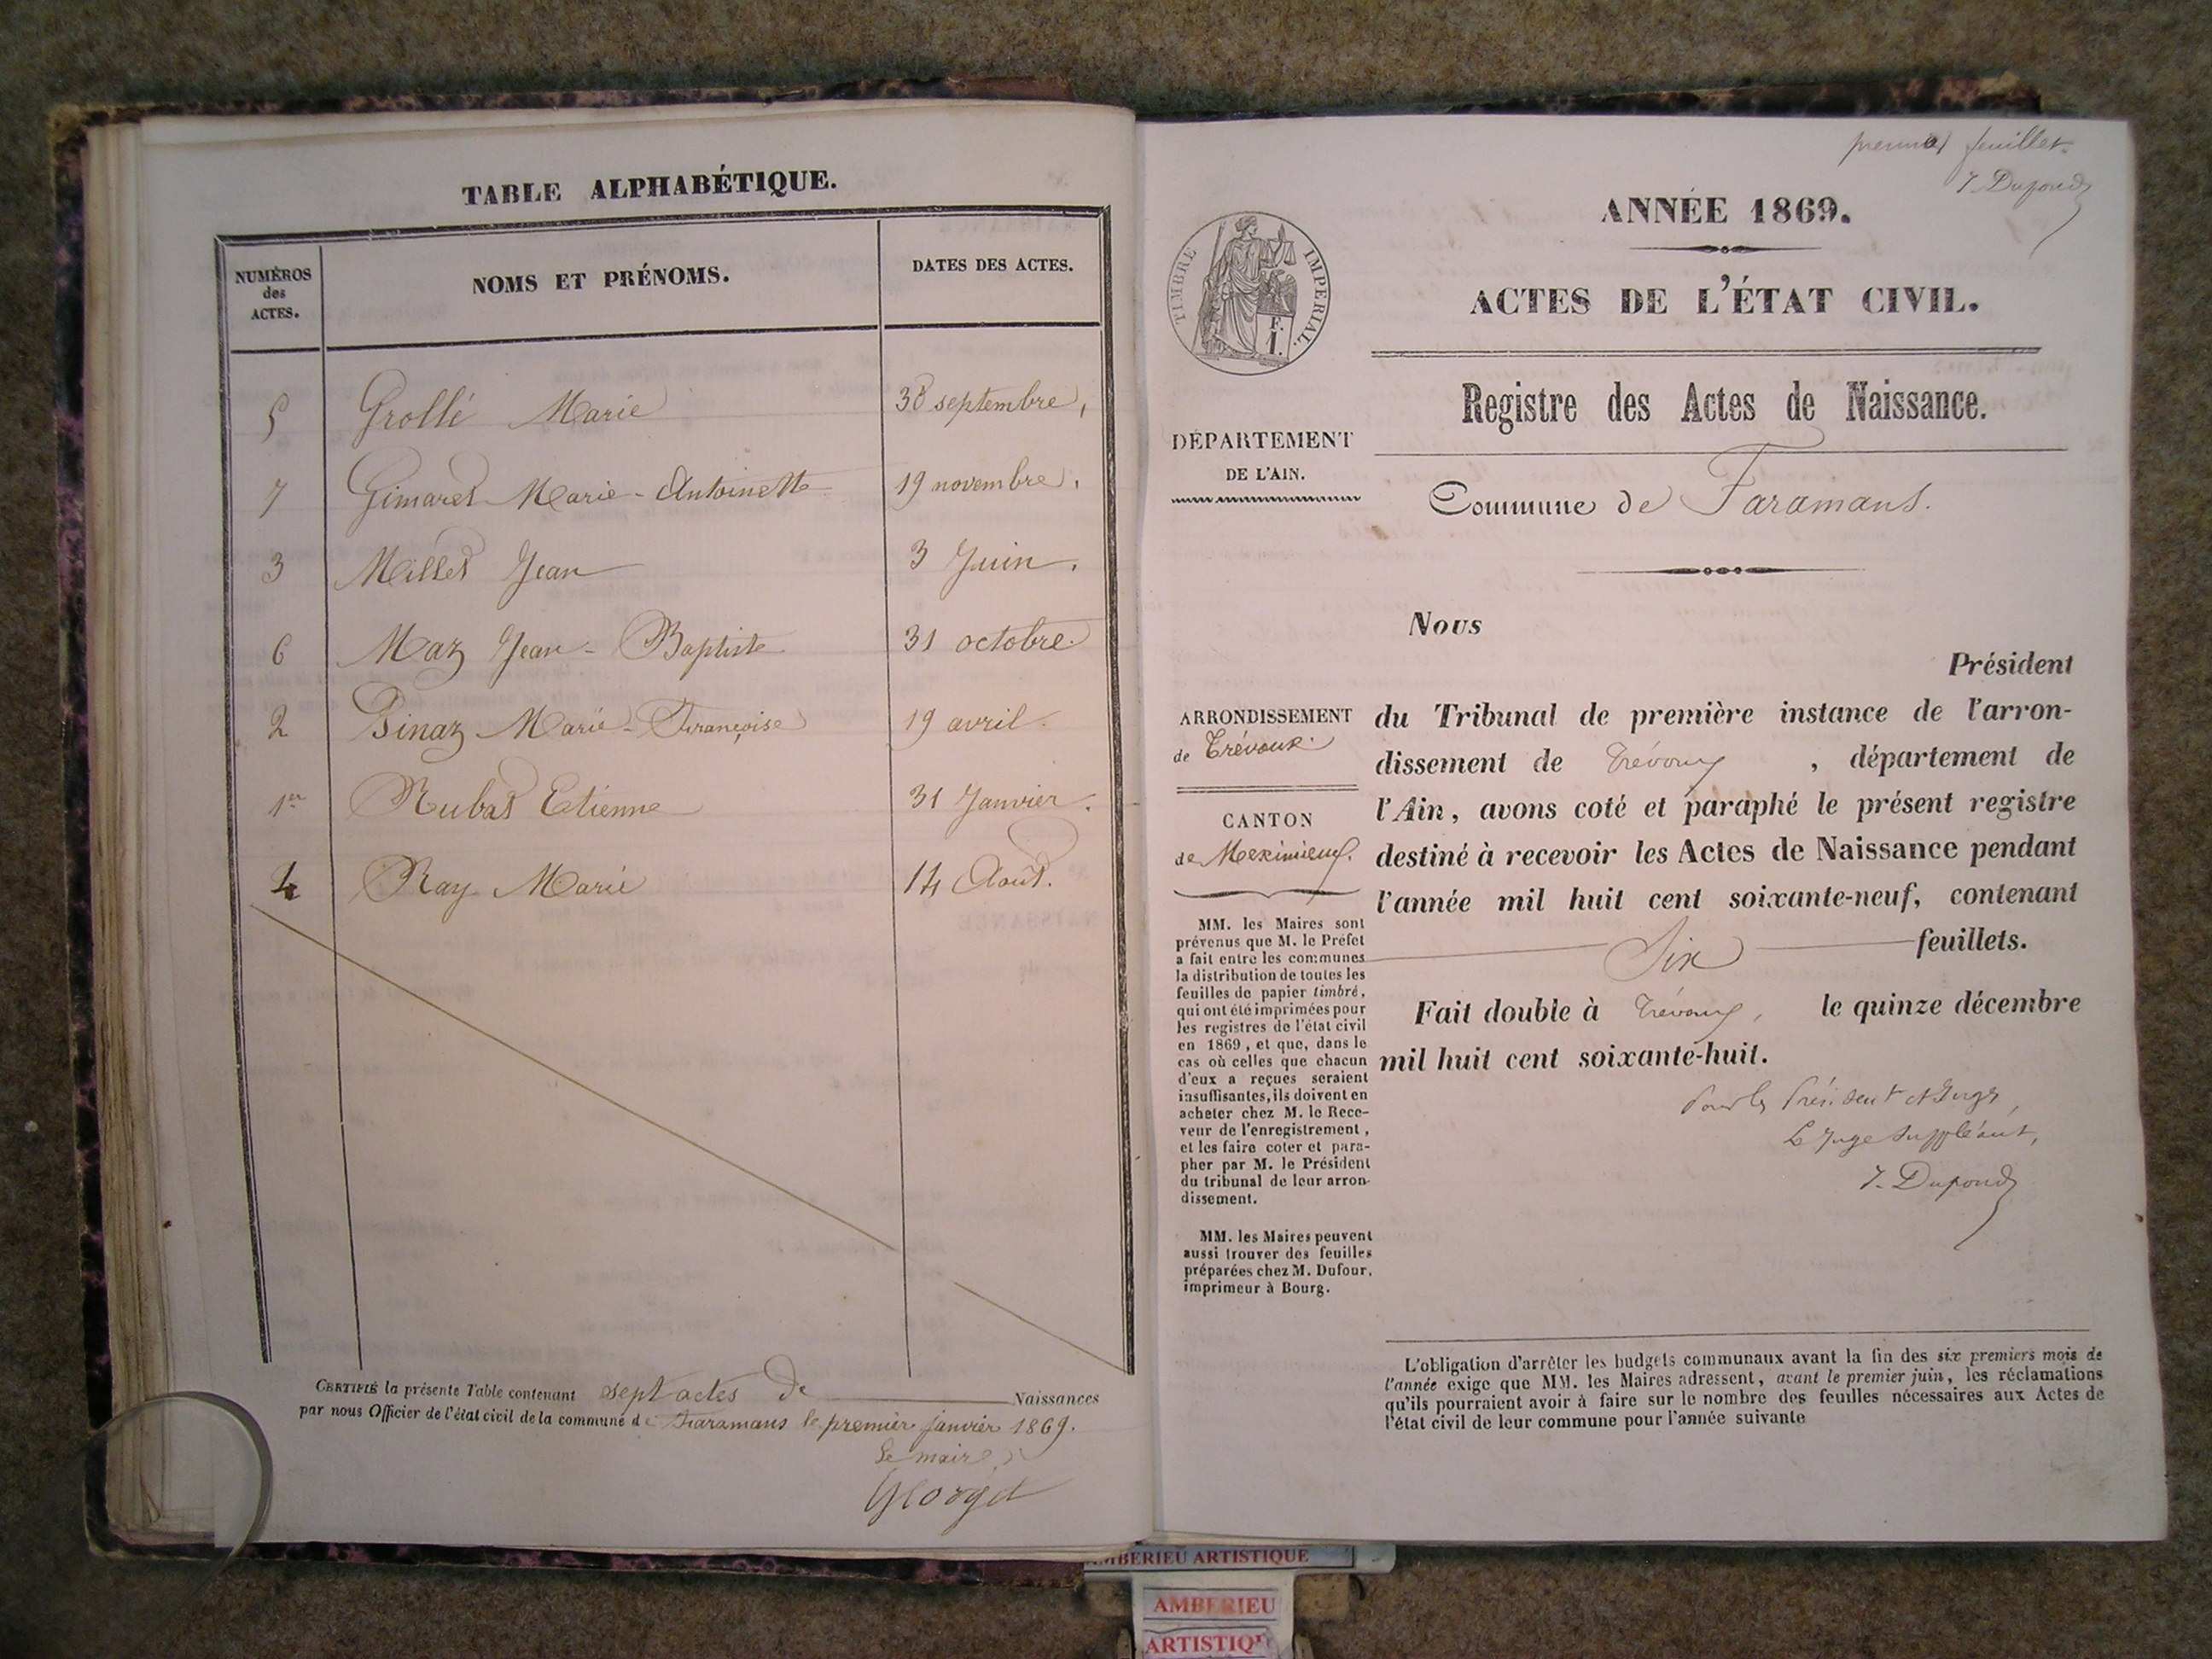 TABLE ALPHABÉTIQUE.
NUMÉROS
des
ACTES.
NOMS ET PRÉNOMS.
DATES DES ACTES.
5 Grollé Marie 30 septembre,
7 Gimaret Marie-Antoinette 19 novembre.
3 Millet Jean 3 Juin.
6 Maz Jean-Baptiste 31 octobre
2 Pinaz Marie-Françoise 19 avril.
1er Rubat Etienne 31 Janvier.
4 Ray Marie 14 Aout.
CERTIFIÉ la présente Table contenant sept actes de Naissances
par nous Officier de l'état civil de la commune de Faramans le premier Janvier 1869.
Le maire
premier feuillet.
J. Dupond
ANNÉE 1869.
TIMBRE IMPERIAL.
F.
1.
ACTES DE L'ÉTAT CIVIL.
Registre des Actes de Naissance.
DÉPARTEMENT
DE L'AIN.
Commune de Faramans.
ARRONDISSEMENT
de Trévoux.
CANTON
de Meximieux.
MM. les Maires sont
prévenus que M. le Préfet
a fait entre les communes
la distribution de toutes les
feuilles de papier timbré,
qui ont été imprimées pour
les registres de l'état civil
en 1869, et que, dans le
cas où celles que chacun
d'eux a reçues seraient
insuffisantes, ils doivent en
acheter chez M. le Rece-
veur de l'enregistrement,
et les faire coter et para-
pher par M. le Président
du tribunal de leur arron-
dissement.
MM. les Maires peuvent
aussi trouver des feuilles
préparées chez M. Dufour,
imprimeur à Bourg.
Nous
Président
du Tribunal de première instance de l'arron-
dissement de Trévoux, département de
l'Ain, avons coté et paraphé le présent registre
destiné à recevoir les Actes de Naissance pendant
l'année mil huit cent soixante-neuf, contenant
Six feuillets.
Fait double à Trévoux, le quinze décembre
mil huit cent soixante-huit.
Pour les Président et Juges,
Le Juge Suppléant,
J. Dupond
L'obligation d'arrêter les budgets communaux avant la fin des six premiers mois de
l'année exige que MM. les Maires adressent, avant le premier juin, les réclamations
qu'ils pourraient avoir à faire sur le nombre des feuilles nécessaires aux Actes de
l'état civil de leur commune pour l'année suivante
AMBERIEU ARTISTIQUE
AMBERIEU
ARTISTIQU